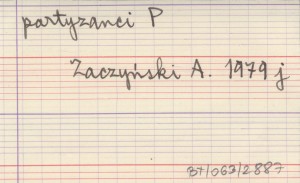 partyzanci P
Zaczyński A. 1979 j
BT/063/2887